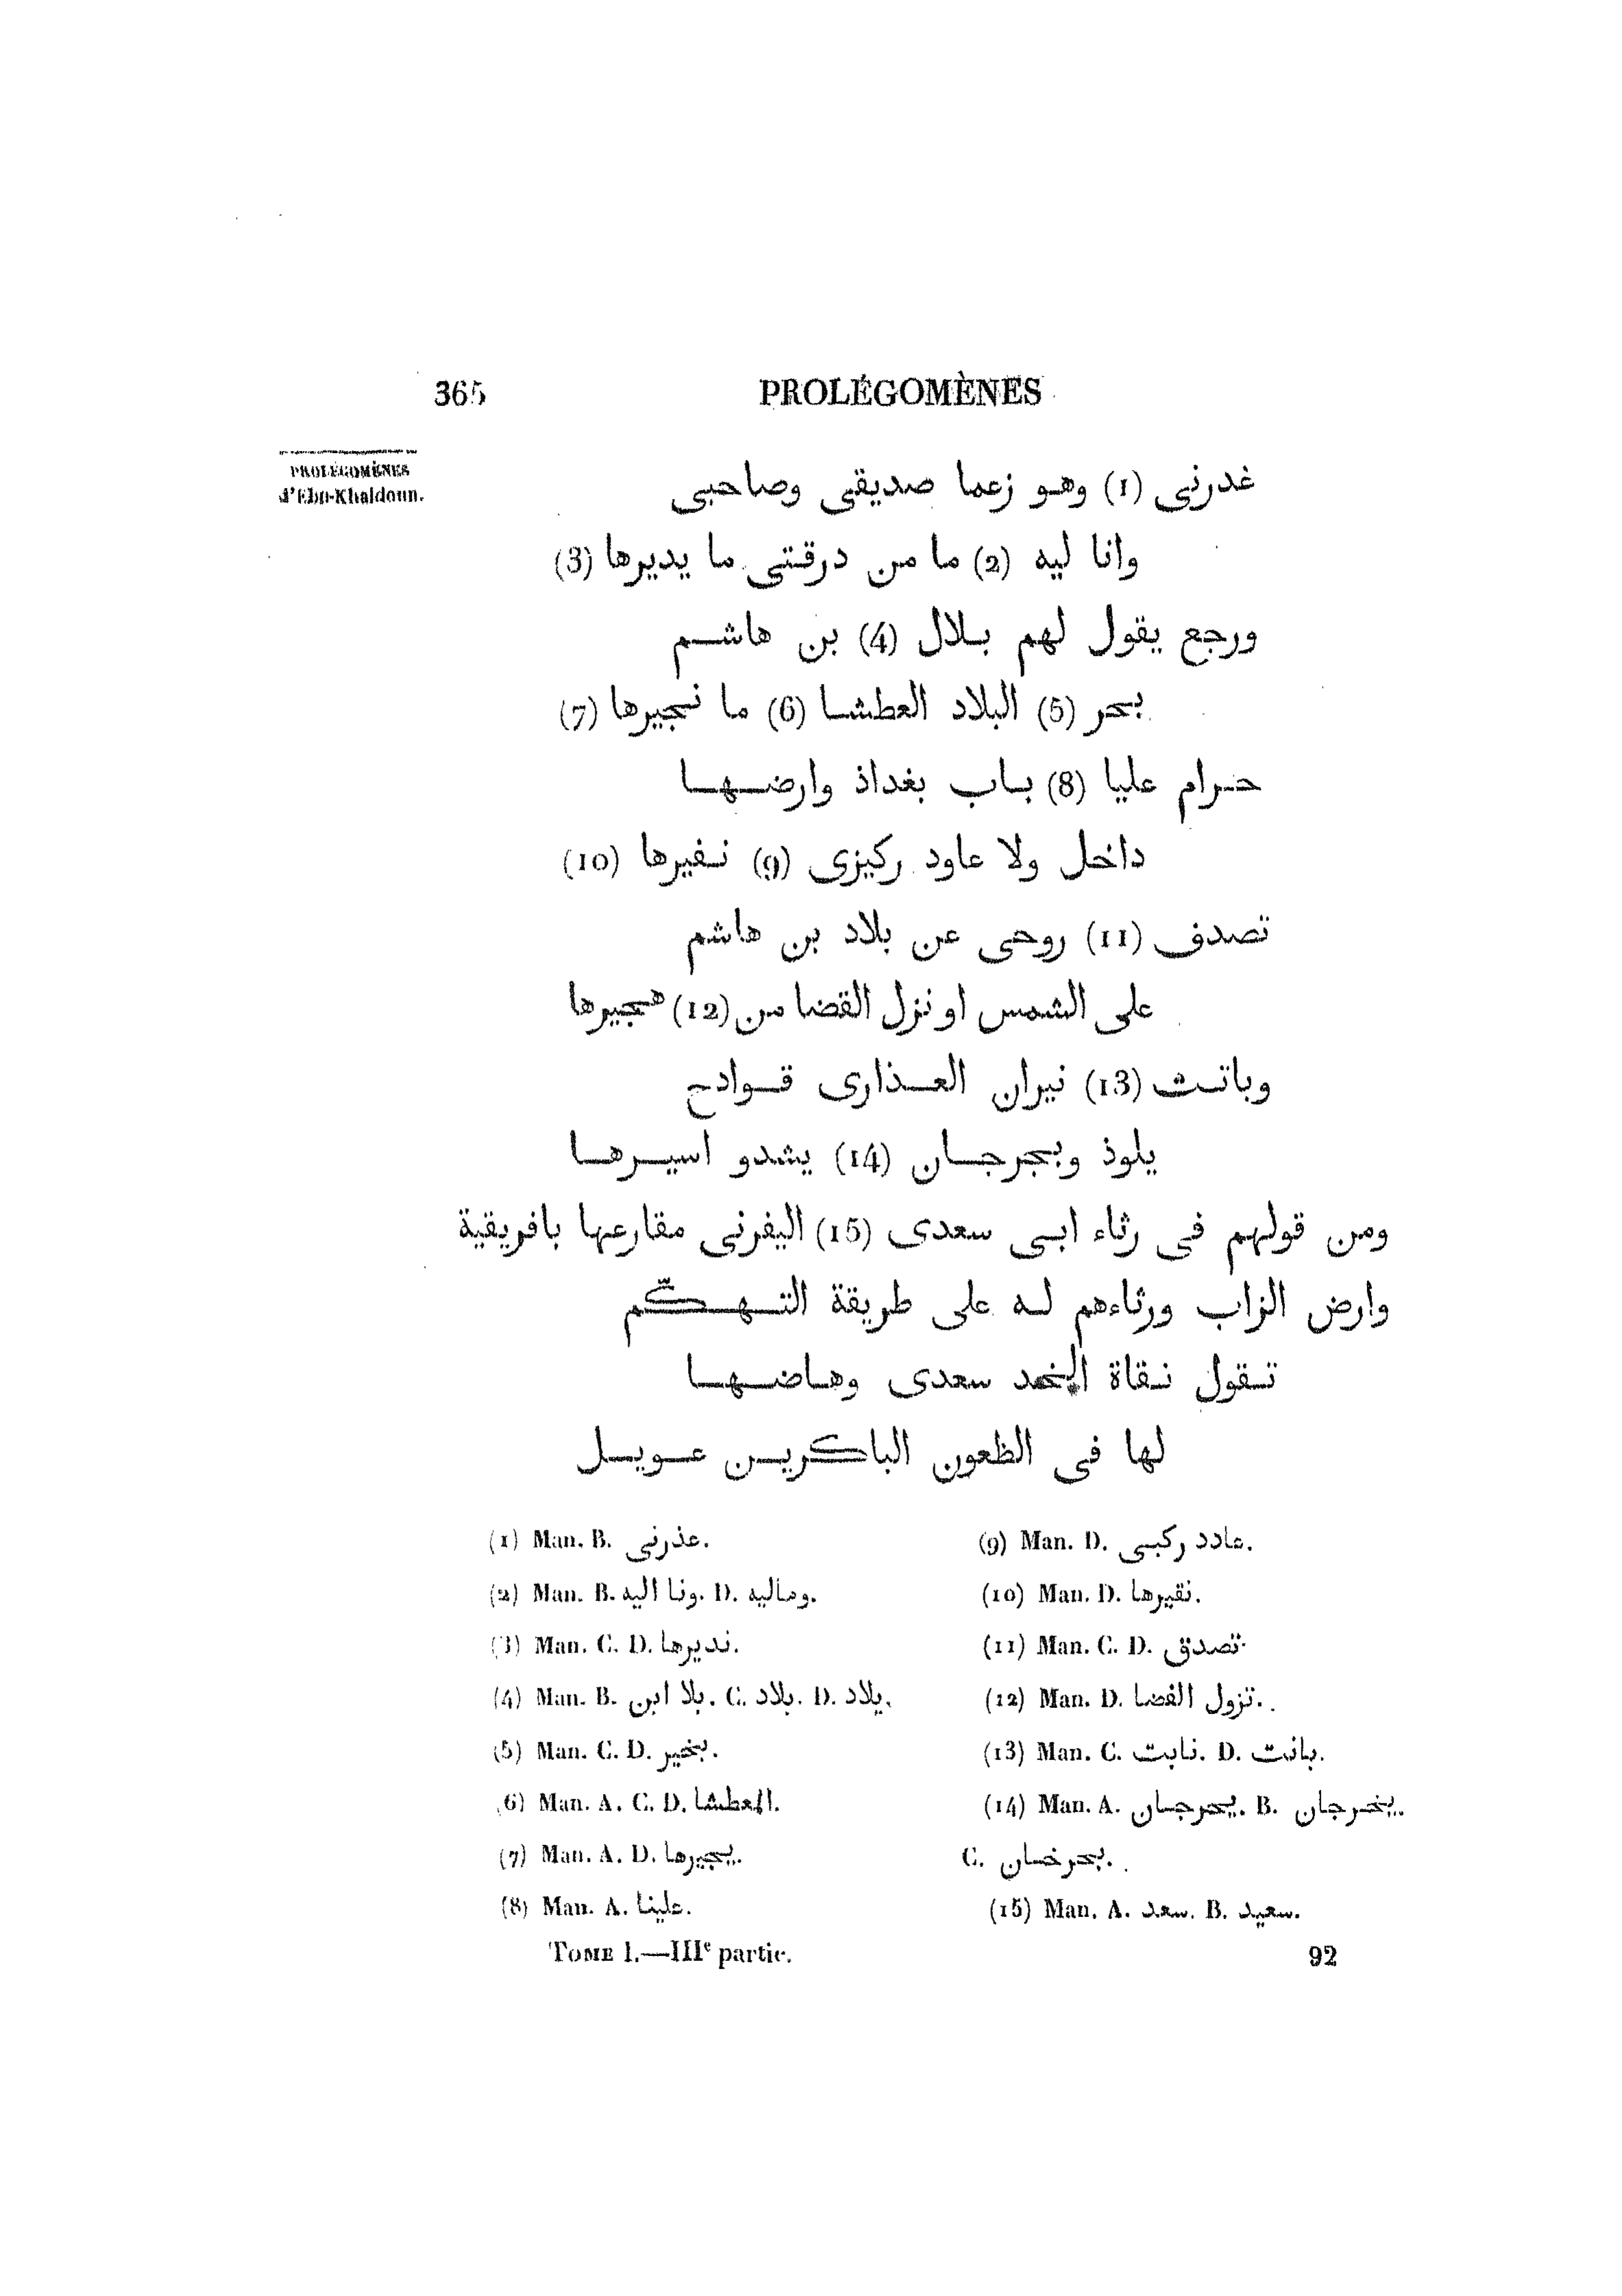 365 PROLÉGOMÈNES
PROLÉGOMÈNES
d'Ebn-Khaldoun.
غدرنى (1) وهو زعما صديقى وصاحبى
وانا ليه (2) ما من درقتى ما يديرها (3)
ورجع يقول لهم بلال (4) بن هاشم
بحر (5) البلاد العطشا (6) ما نجيرها (7)
حرام عليا (8) باب بغداذ وارضها
داخل ولا عاود ركيزى (9) نفيرها (10)
تصدف (11) روحى عن بلاد بن هاشم
على الشمس او نزل القضا من (12) هجيرها
وباتت (13) نيران العذارى قوادح
يلوذ وبجرجان (14) يشدو اسيرها
ومن قولهم فى رثاء ابى سعدى (15) اليفرنى مقارعها بافريقية
وارض الزاب ورثاءهم له على طريقة التهكّم
تقول نقاة سعدى وهاضها
لها فى الظعون الباكرين عويل
(1) Man. B. عذرنى.
(2) Man. B. ونا اليه. D. وماليه.
(3) Man. C. D. نديرها.
(4) Man. B. بلا ابن. C. بلاد. D. يلاد.
(5) Man. C. D. بخير.
(6) Man. A. C. D. العطشا.
(7) Man. A. D. يجيرها.
(8) Man. A. علينا.
(9) Man. D. عادد ركبى.
(10) Man. D. نقيرها.
(11) Man. C. D. تصدق.
(12) Man. D. تزول الفضا.
(13) Man. C. نابت. D. بانت.
(14) Man. A. يحرجان. B. يخرجان.
C. بحرخان.
(15) Man. A. سعد. B. سعيد.
TOME I.—IIIe partie. 92